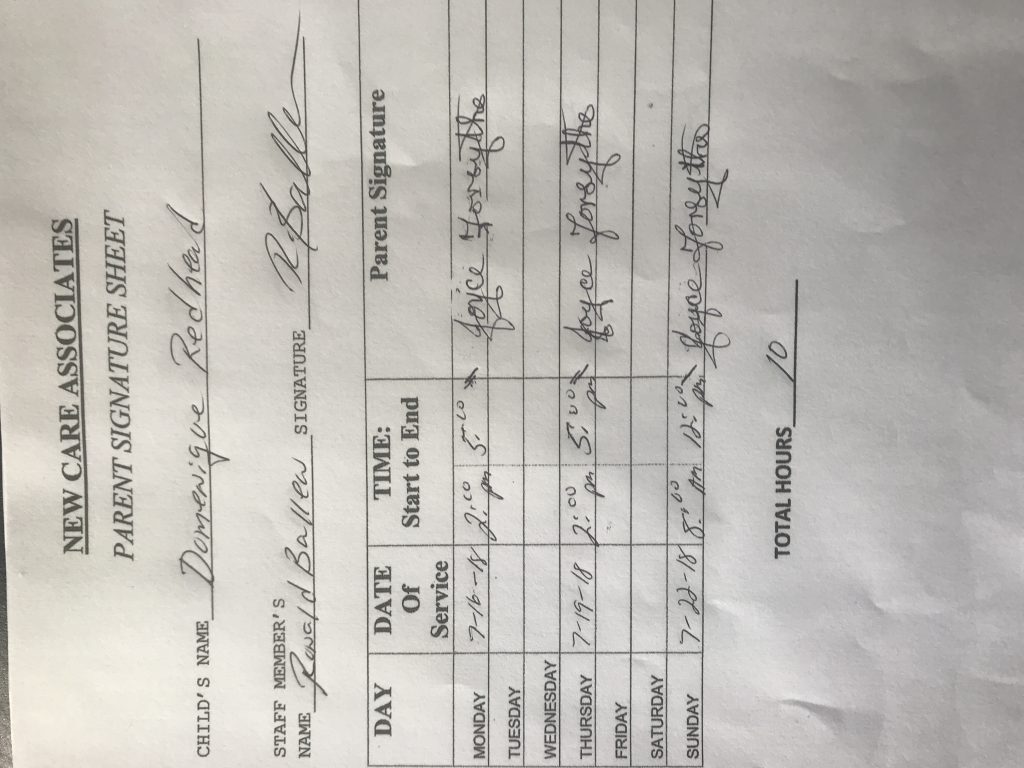 NEW CARE ASSOCIATES
PARENT SIGNATURE SHEET
CHILD'S NAME Domenique Redhead
STAFF MEMBER'S
NAME Ronald Ballew SIGNATURE R Balle
DAY DATE Of Service TIME: Start to End Parent Signature
MONDAY 7-16-18 2:00 pm 5:00 Joyce Forsythe
TUESDAY
WEDNESDAY
THURSDAY 7-19-18 2:00 pm 5:00 pm Joyce Forsythe
FRIDAY
SATURDAY
SUNDAY 7-22-18 8:00 am 12:00 pm Joyce Forsythe
TOTAL HOURS 10